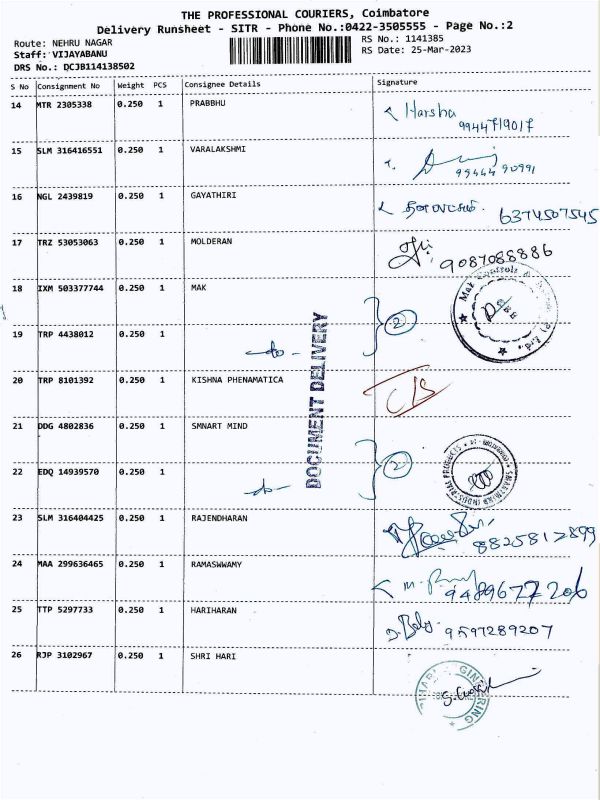 THE PROFESSIONAL COURIERS, Coimbatore
Delivery Runsheet - SITR - Phone No.:0422-3505555 - Page No.:2
Route: NEHRU NAGAR RS No.: 1141385
Staff: VIJAYABANU RS Date: 25-Mar-2023
DRS No.: DCJB114138502
S No Consignment No Weight PCS Consignee Details Signature
14 MTR 2305338 0.250 1 PRABBHU Harsha
9944719017
15 SLM 316416551 0.250 1 VARALAKSHMI
99444 90991
16 NGL 2439819 0.250 1 GAYATHIRI
6374507545
17 TRZ 53053063 0.250 1 MOLDERAN
9087088886
18 IXM 503377744 0.250 1 MAK 2
19 TRP 4438012 0.250 1 -do-
20 TRP 8101392 0.250 1 KISHNA PHENAMATICA C/S
DOCUMENT DELIVERY
21 DDG 4802836 0.250 1 SMNART MIND 2
22 EDQ 14939570 0.250 1 -do-
23 SLM 316404425 0.250 1 RAJENDHARAN
8825812899
24 MAA 299636465 0.250 1 RAMASWWAMY
9489677206
25 TTP 5297733 0.250 1 HARIHARAN
9597289207
26 RJP 3102967 0.250 1 SHRI HARI